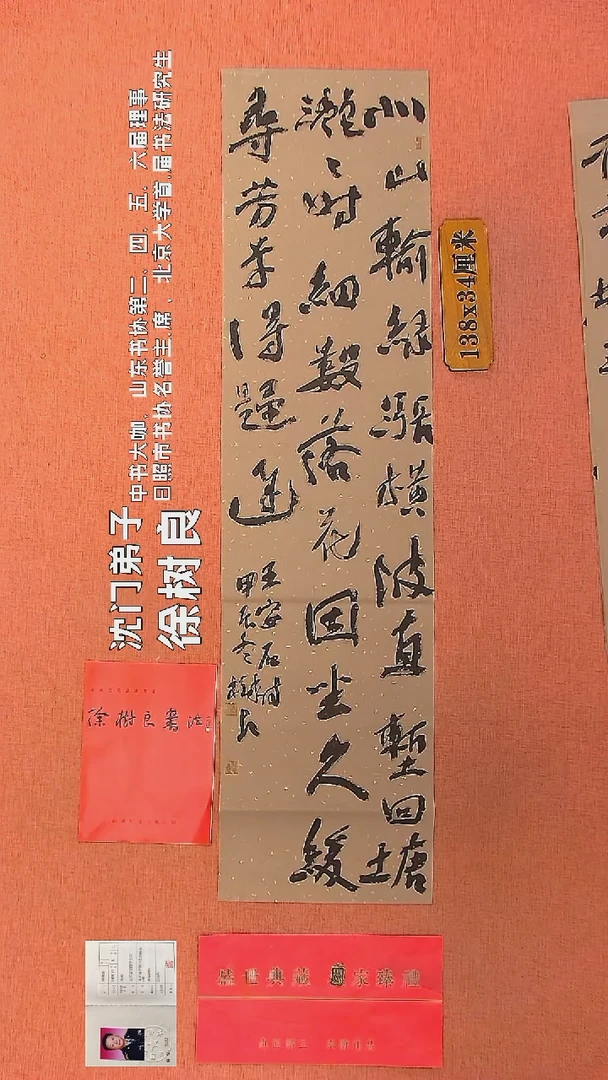 北山輸緑漲橫陂直塹回塘
灔〻時細數落花因坐久緩
尋芳草得歸遲
王安石詩
甲辰冬樹良
138x34厘米
沈门弟子
徐树良
中书大咖、山东书协第二、四、五、六届理事
日照市书协名誉主席、北京大学首届书法研究生
徐樹良書法
盛世典藏